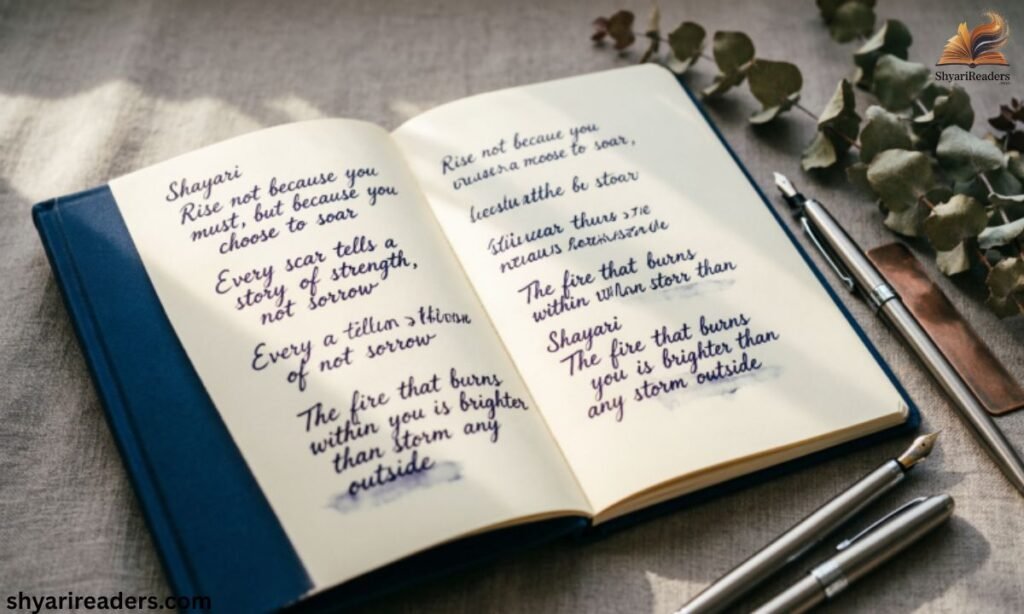 Shayari
Rise not because you
must, but because you
choose to soar
Every scar tells a
story of strength,
not sorrow
Every a
of not sorrow
The fire that burns
within you is brighter
than storm any
outside
Rise not becaue you
to soar,
the
The fire that burns
within storr than
Shayari
The fire that burns
you is brighter than
any storm outside
ShyariReaders
shyarireaders.com